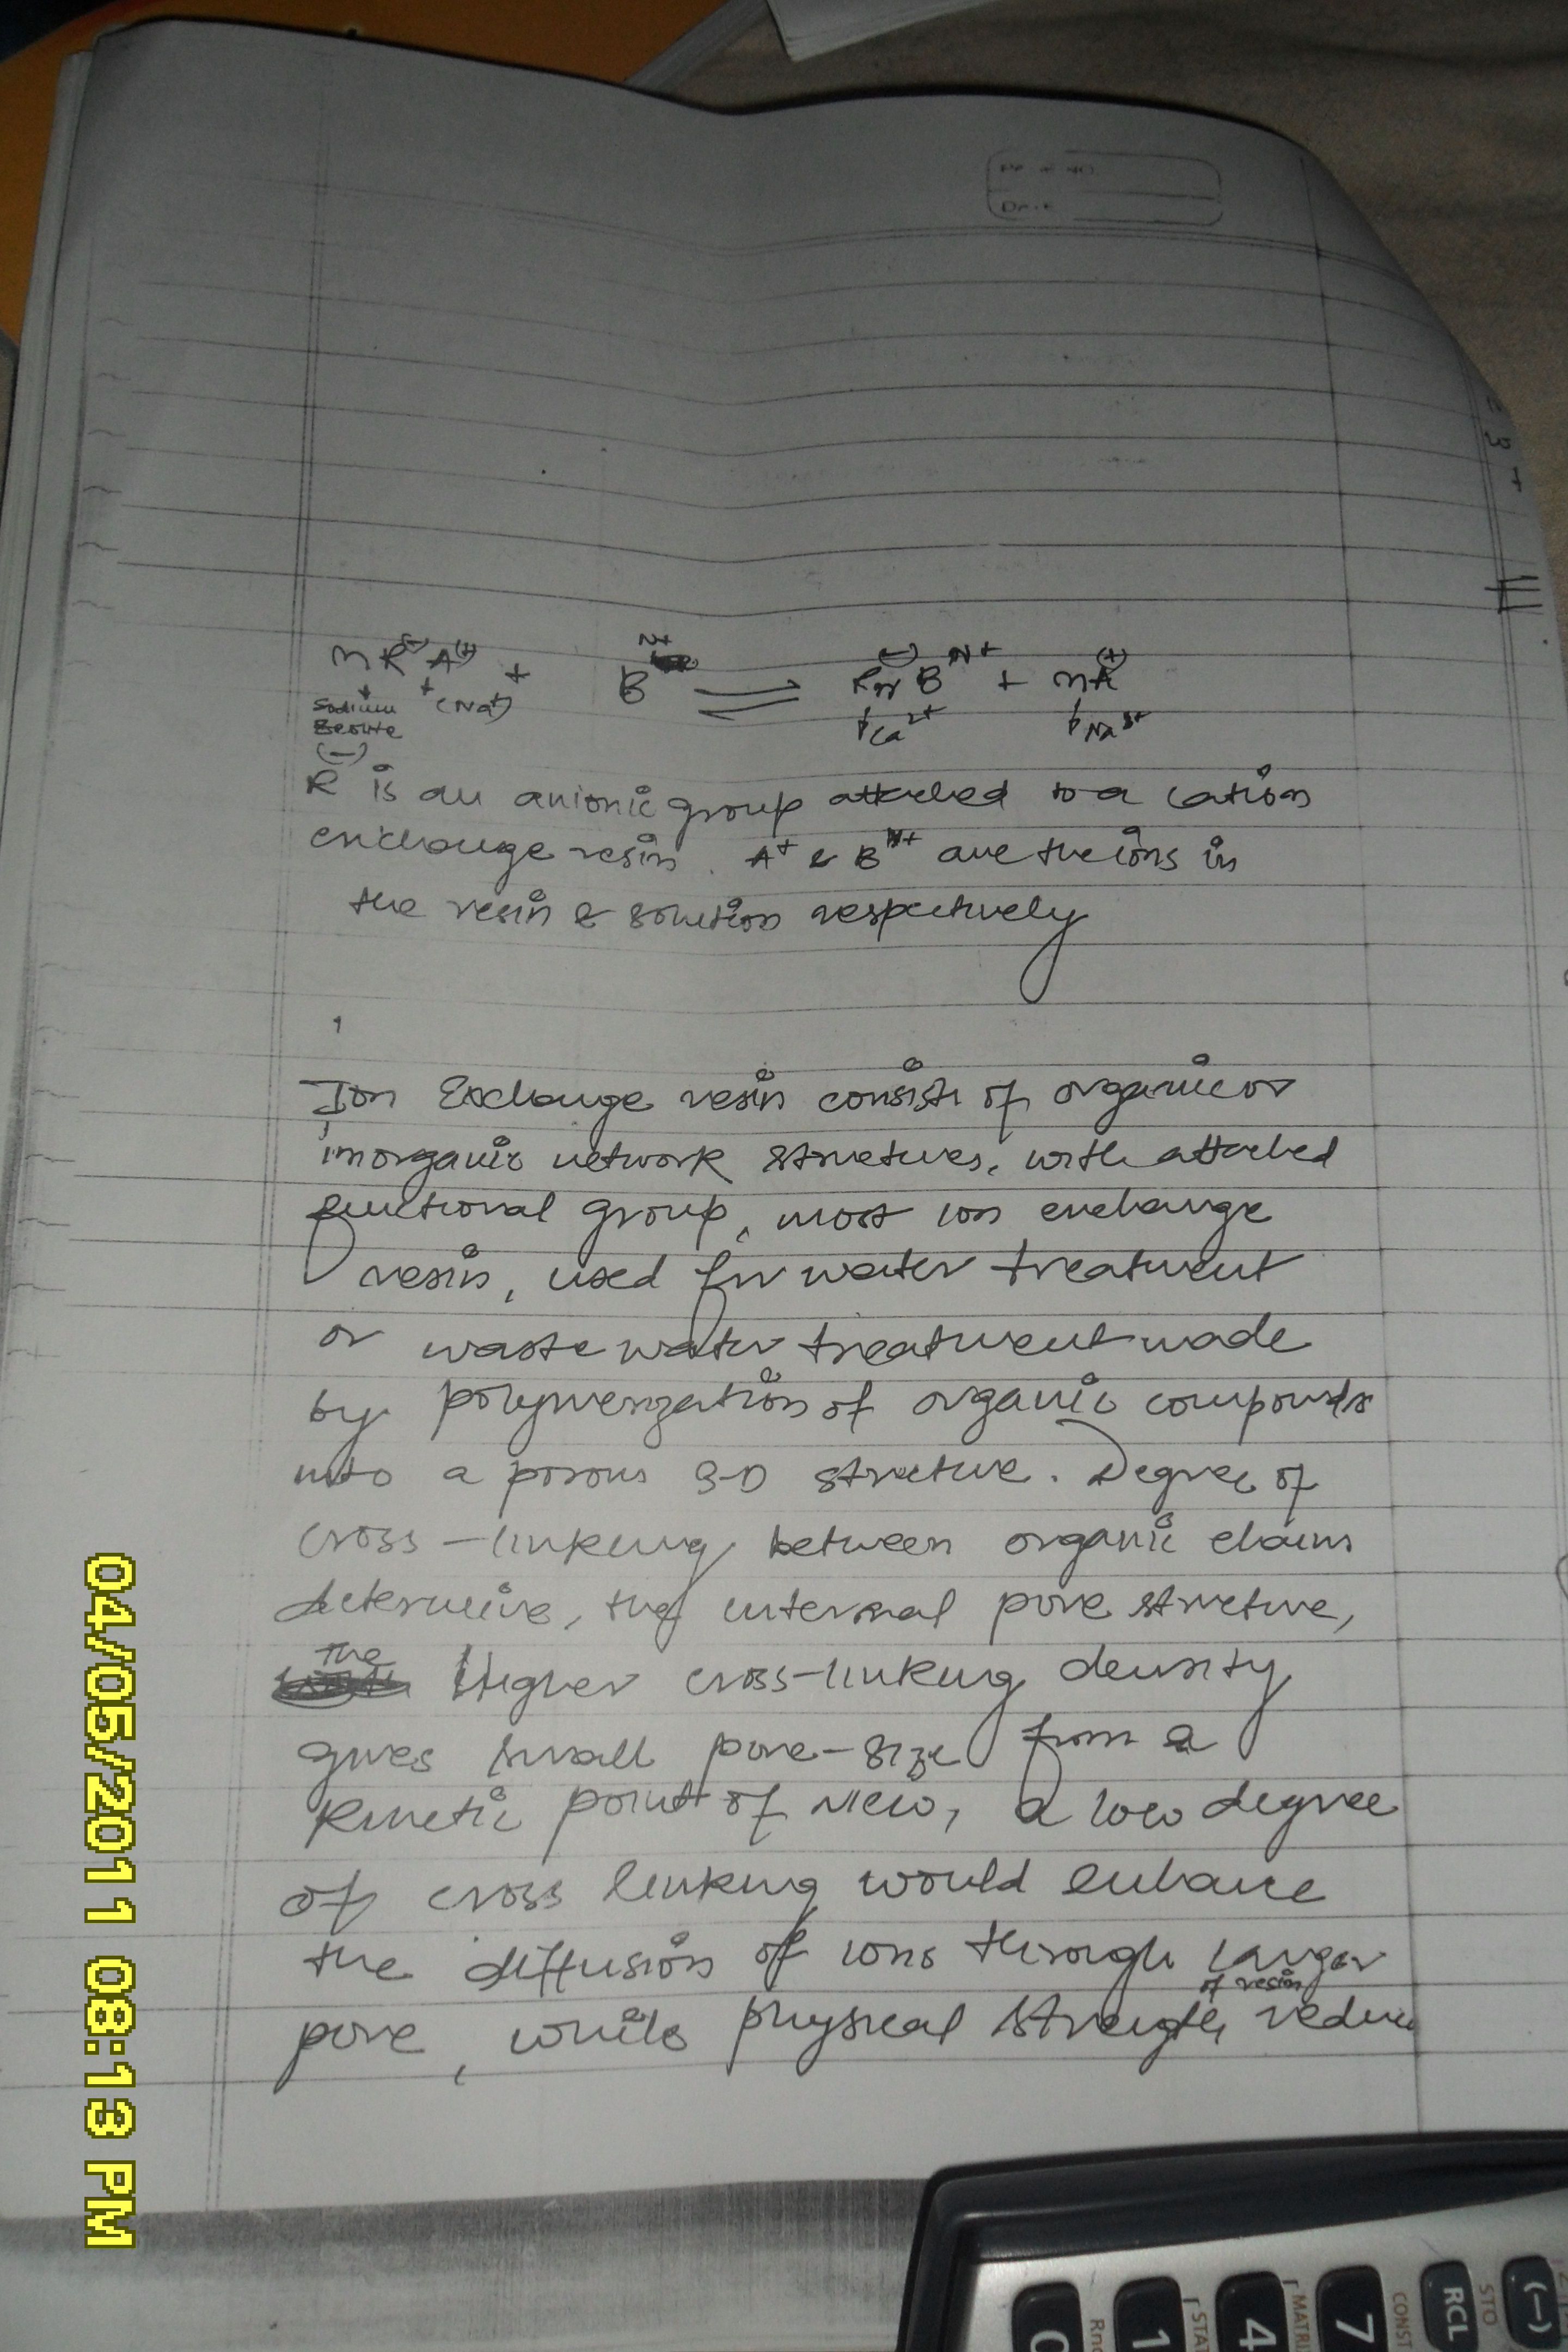 Page No.
Date
nR(-)A(+) + B^N+ ⇌ RnB^(-)N+ + nA(+)
Sodium (Na+) Ca2+ Na
Zeolite
R(-) is an anionic group attached to a cation
exchange resin. A+ & B^n+ are the ions in
the resin & solution respectively
Ion Exchange resin consists of organic or
inorganic network structures, with attached
functional group, most ion exchange
resin, used for water treatment
or waste water treatment made
by polymerization of organic compounds
into a porous 3-D structure. Degree of
cross-linking between organic chains
determine, the internal pore structure,
The Higher cross-linking density
gives small pore-size from a
kinetic point of view, a low degree
of cross linking would enhance
the diffusion of ions through larger
pore, while physical strength of resin reduce
04/05/2011 08:13 PM
0 1 4 7 RCL (-)
Rn STAT MATRI CONS STO